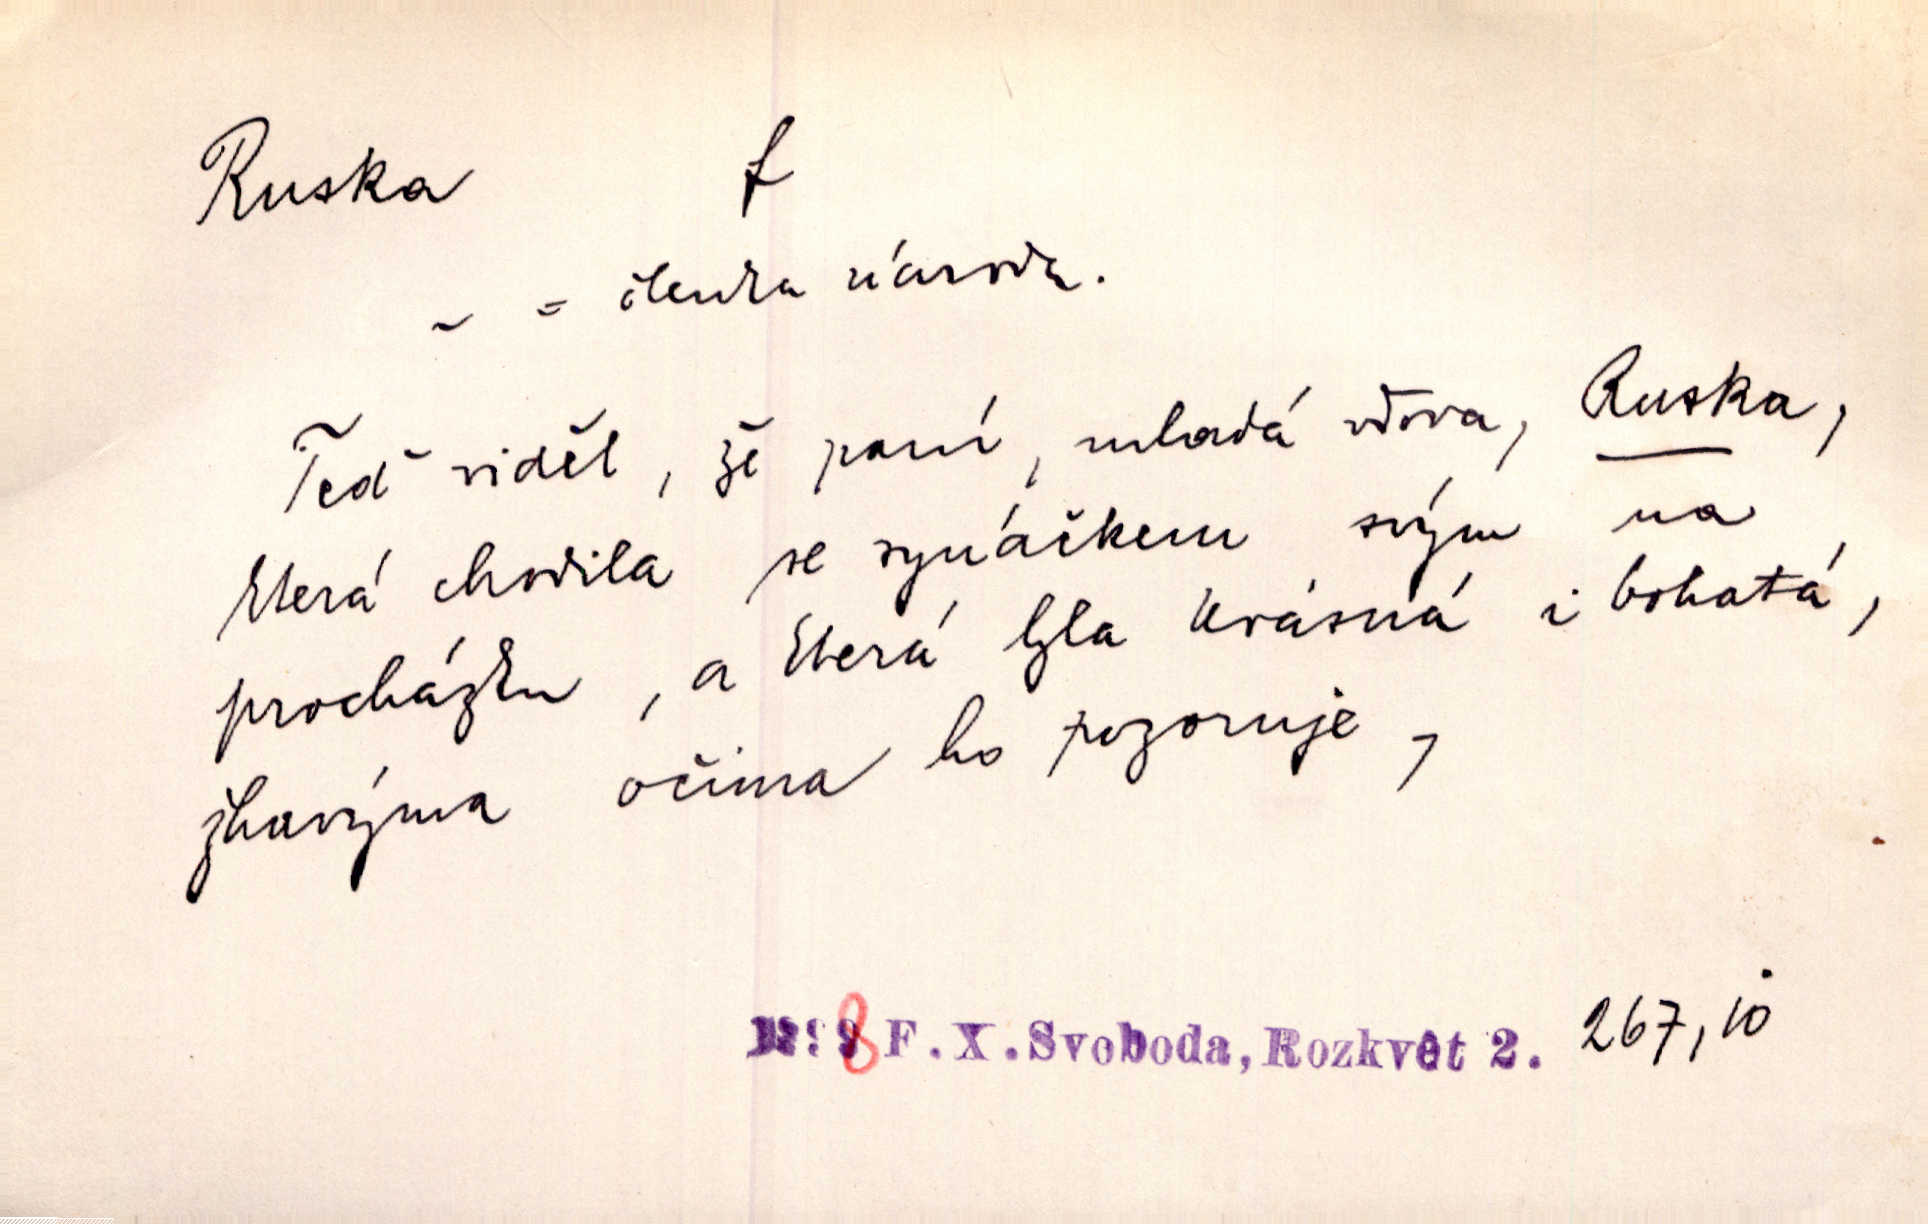 Ruska f
~ = členka národa.
Teď viděl, že paní, mladá vdova, Ruska,
která chodila se synáčkem svým na
procházku, a která byla krásná i bohatá,
žhavýma očima ho pozoruje,
8 F.X.Svoboda, Rozkvět 2. 267, 10